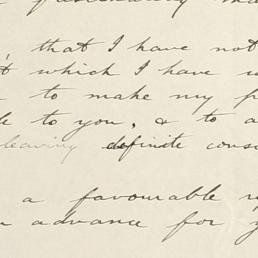 that I have not
which I have
to make my
to you, & to a
leaving definite
a favourable
advance for